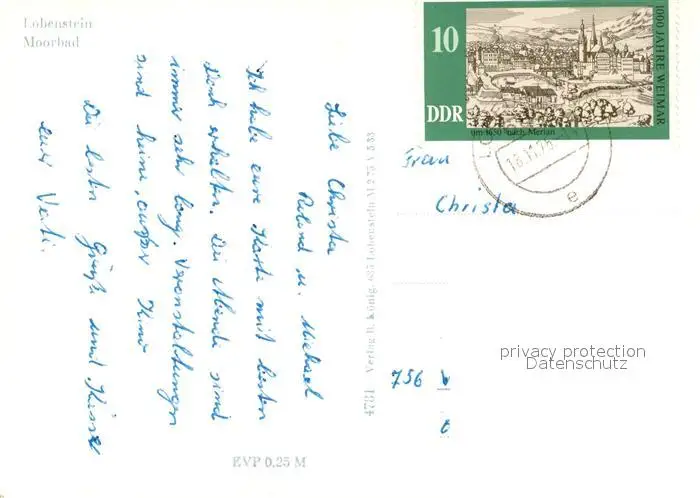 Lobenstein
Moorbad
Liebe Christa
Roland u. Michael
Ich habe eure Karte mit besten
Dank erhalten. Die Abende sind
immer sehr lang. Veranstaltungen
sind keine, außer Kino
Die besten Grüße und Küsse
euer Vati.
EVP 0,25 M
4781 Verlag R. König, 685 Lobenstein M 2 75 V 5 83
10
DDR
um 1650 nach Merian
1000 JAHRE WEIMAR
18.11.75
e
Frau
Christa
756
privacy protection
Datenschutz